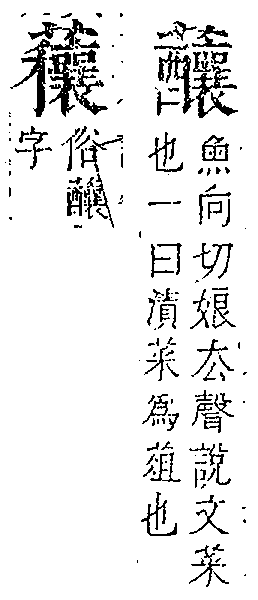 䖆
魚向切娘厺聲說文菜
也一曰漬菜爲葅也
俗釀
字